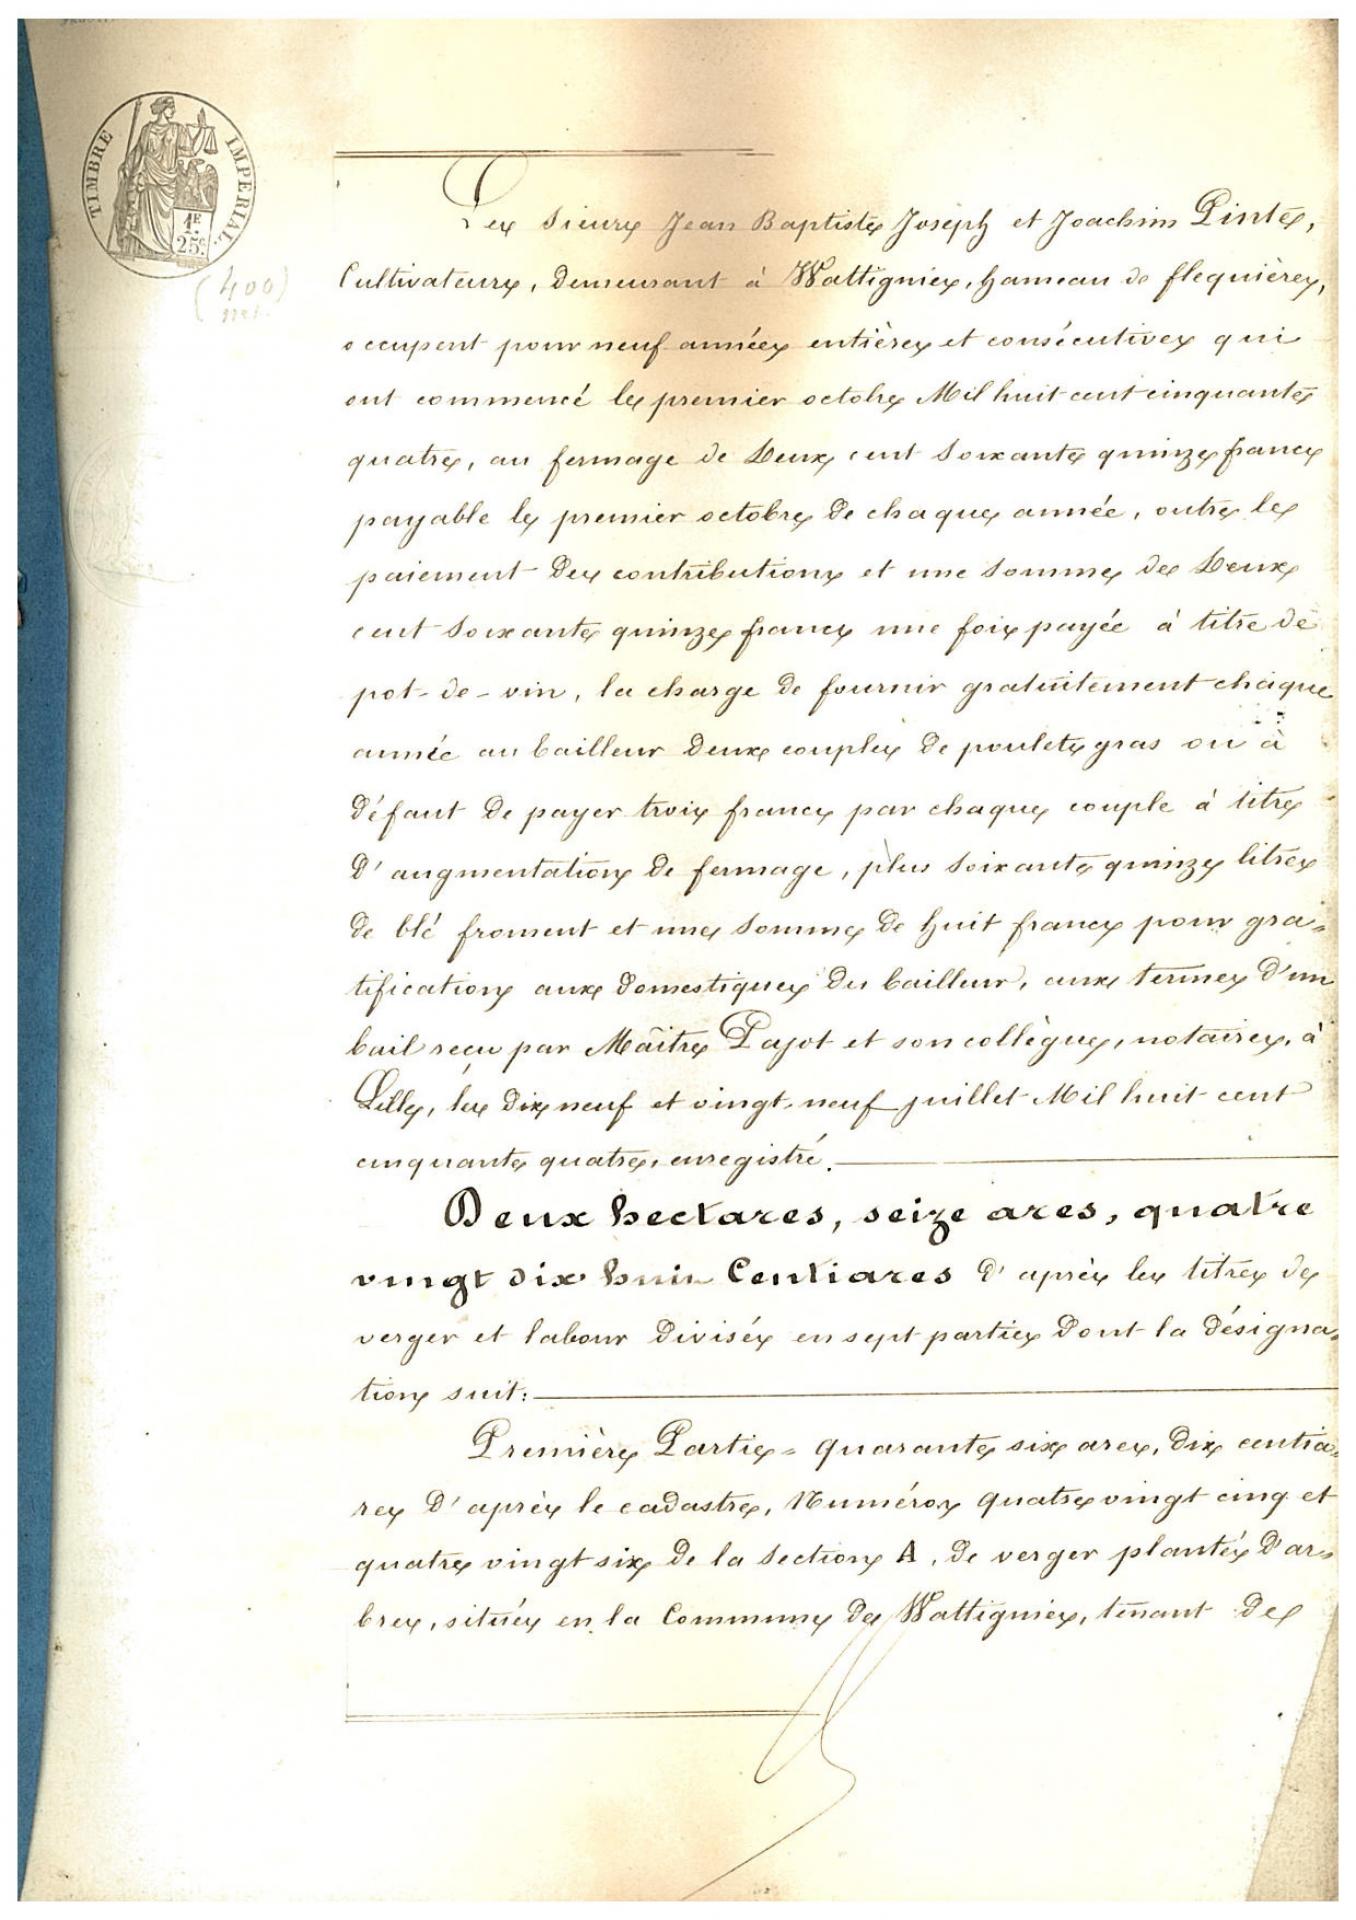 TIMBRE IMPERIAL.
1F.
25c.
(400)
Les Sieurs Jean Baptiste Joseph et Joachim Pinte,
Cultivateurs, demeurant à Wattignies, hameau de flequières,
occupent pour neuf années entières et consécutives qui
ont commencé le premier octobre Mil huit cent cinquante
quatre, au fermage de Deux cent soixante quinze francs
payable le premier octobre de chaque année, outre le
paiement des contributions et une somme de Deux
cent soixante quinze francs une fois payée à titre de
pot-de-vin, la charge de fournir gratuitement chaque
année au bailleur deux couples de poulets gras ou à
défaut de payer trois francs par chaque couple à titre
d'augmentation de fermage, plus soixante quinze litres
de blé froment et une somme de huit francs pour gra-
tification aux domestiques du bailleur, aux termes d'un
bail reçu par Maître Pajot et son collègue, notaires, à
Lille, les dix neuf et vingt-neuf juillet Mil huit cent
cinquante quatre, enregistré.
Deux hectares, seize ares, quatre
vingt dix huit Centiares d'après les titres de
verger et labour divisés en sept parties dont la désigna-
tion suit:
Première Partie = quarante six ares, dix centia-
res d'après le cadastre, Numéros quatre vingt cinq et
quatre vingt six de la section A, de verger planté d'ar-
bres, située en la Commune de Wattignies, tenant de